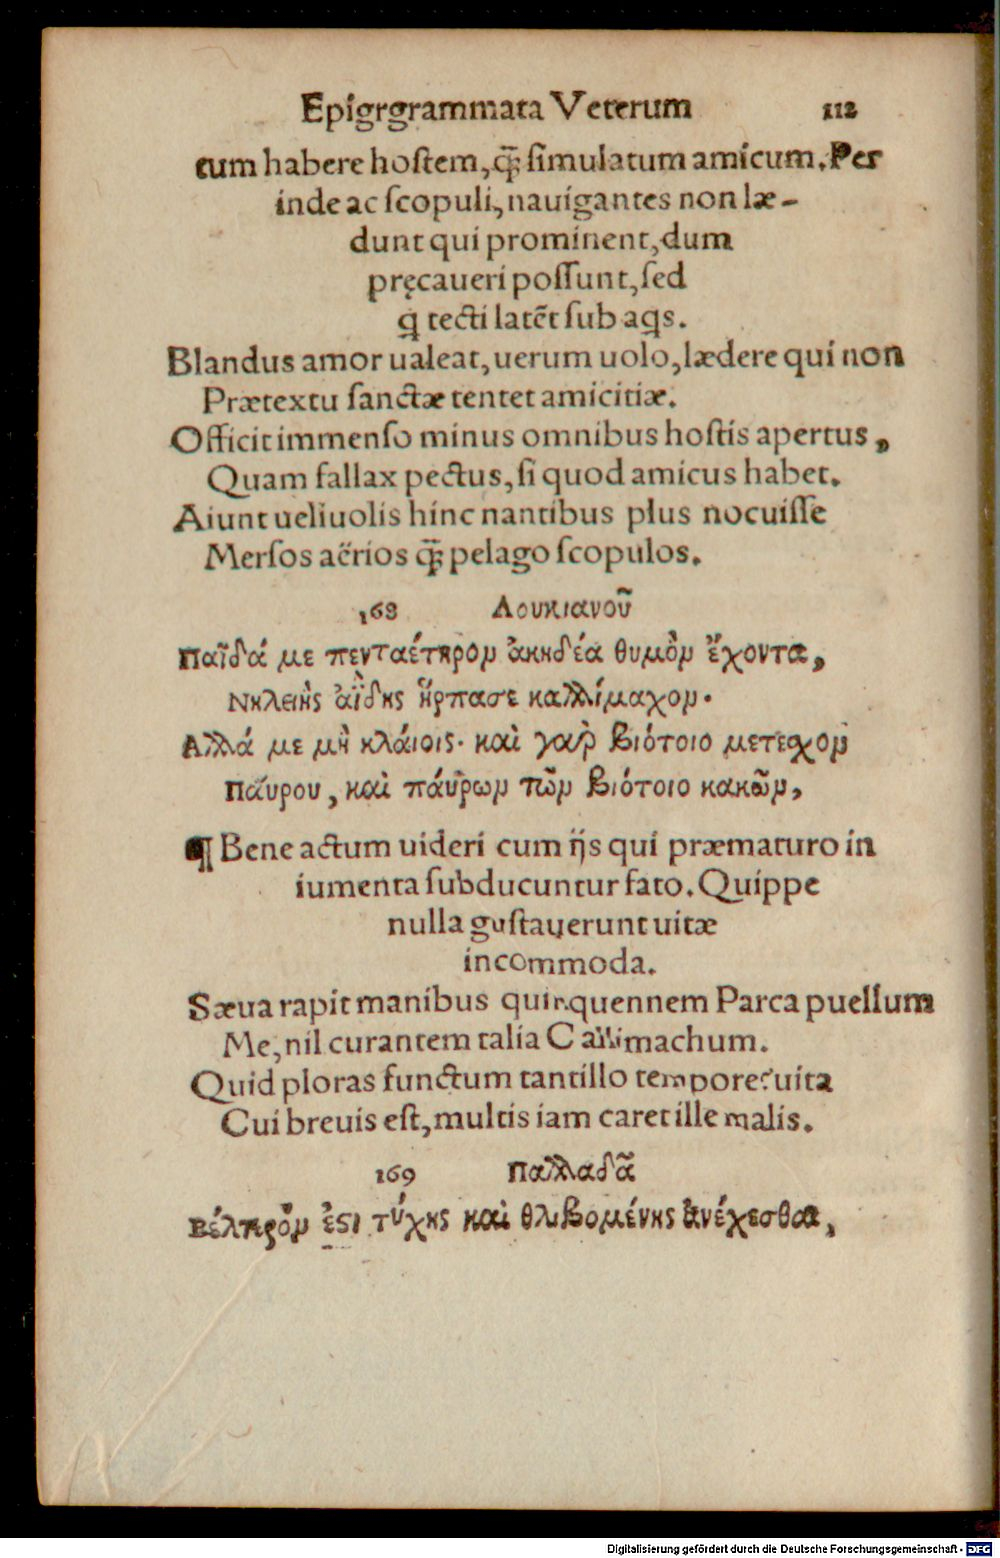 Epigrgrammata Veterum 112
tum habere hostem, q̃ simulatum amicum. Per
inde ac scopuli, nauigantes non læ-
dunt qui prominent, dum
pręcaueri possunt, sed
q tecti latẽt sub aqs.
Blandus amor ualeat, uerum uolo, lædere qui non
Prætextu sanctæ tentet amicitiæ.
Officit immenso minus omnibus hostis apertus,
Quam fallax pectus, si quod amicus habet.
Aiunt ueliuolis hinc nantibus plus nocuisse
Mersos aërios q̃ pelago scopulos.
168 Λουκιανοῦ
Παῖδά με πενταέτηρον ἀκηδέα θυμὸν ἔχοντα,
Νηλειὴς ἀΐδης ἥρπασε καλλίμαχον.
Αλλά με μὴ κλάιοις. καὶ γαὶρ βιότοιο μετεχον
Πάυρου, καὶ πάυρων τῶν βιότοιο κακῶν,
¶ Bene actum uideri cum ijs qui præmaturo in
iumenta subducuntur fato. Quippe
nulla gustauerunt uitæ
incommoda.
Sæua rapit manibus quinquennem Parca puellum
Me, nil curantem talia Callimachum.
Quid ploras functum tantillo tempore? uita
Cui breuis est, multis iam caret ille malis.
169 Παλλαδᾶ
Βέλτιρὸν ἐστι τύχης καὶ θλιβομένης ἀνέχεσθαι,
Digitalisierung gefördert durch die Deutsche Forschungsgemeinschaft - DFG